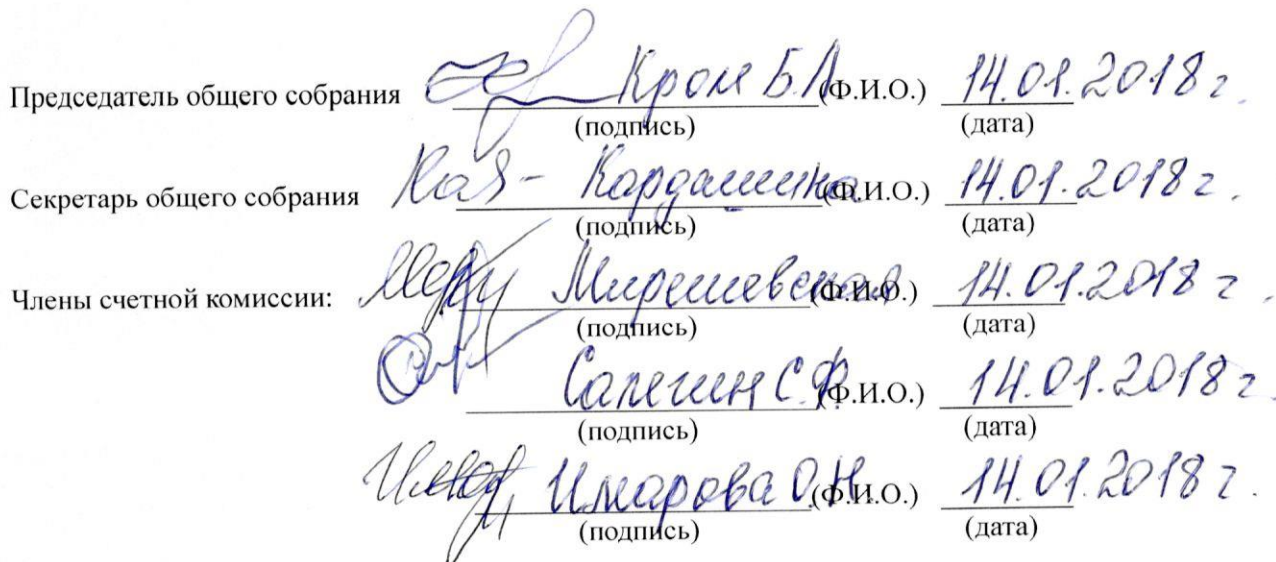 Председатель общего собрания Кром Б.Л. (Ф.И.О.) 14.01.2018 г.
(подпись) (дата)
Секретарь общего собрания Кардашина (Ф.И.О.) 14.01.2018 г.
(подпись) (дата)
Члены счетной комиссии: (Ф.И.О.) 14.01.2018 г.
(подпись) (дата)
Сапегин С.Ф. (Ф.И.О.) 14.01.2018 г.
(подпись) (дата)
Имарова О.Н. (Ф.И.О.) 14.01.2018 г.
(подпись) (дата)